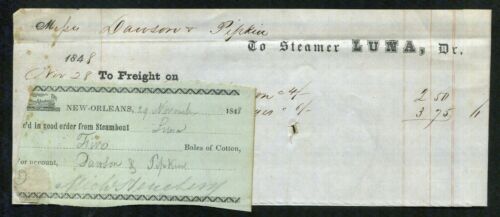 Mess Dawson & Pipkin
To Steamer LUNA, Dr.
1848
Nov 28 To Freight on
4/ 2 50
6/ 3 75
NEW-ORLEANS, 29 November 1848
e'd in good order from Steamboat Luna
Five Bales of Cotton,
or account, Dawson & Pipkin